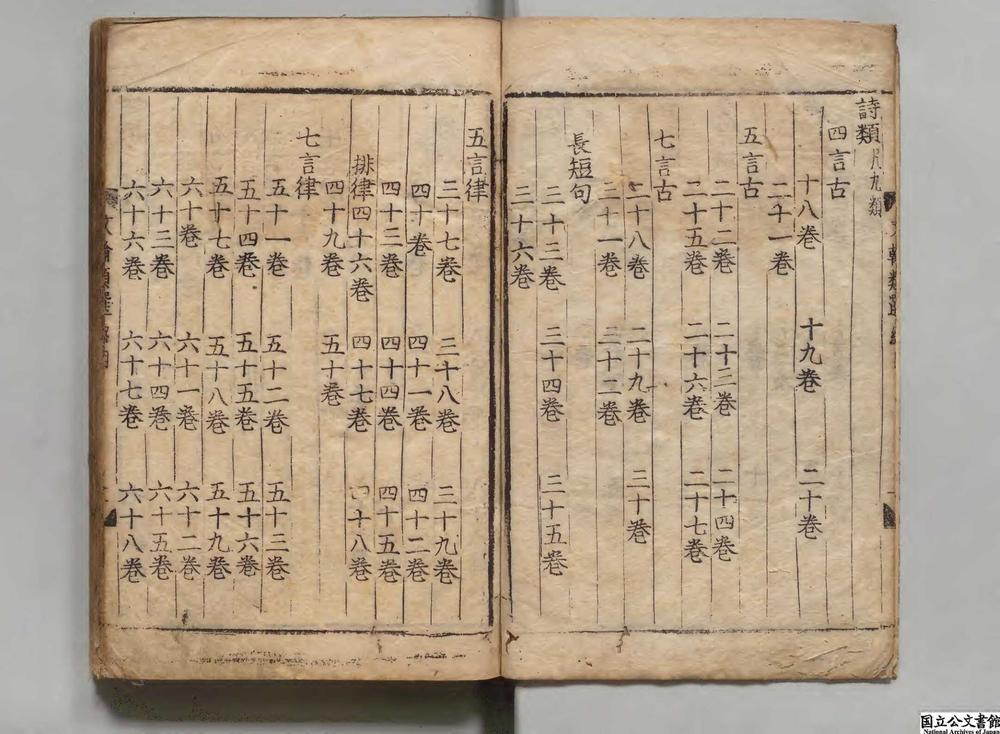 詩類 凡九類
四言古
十八卷 十九卷 二十卷
二十一卷
五言古
二十二卷 二十三卷 二十四卷
二十五卷 二十六卷 二十七卷
七言古
二十八卷 二十九卷 三十卷
三十一卷 三十二卷
長短句
三十三卷 三十四卷 三十五卷
三十六卷
五言律
三十七卷 三十八卷 三十九卷
四十卷 四十一卷 四十二卷
四十三卷 四十四卷 四十五卷
排律四十六卷 四十七卷 四十八卷
四十九卷 五十卷
七言律
五十一卷 五十二卷 五十三卷
五十四卷 五十五卷 五十六卷
五十七卷 五十八卷 五十九卷
六十卷 六十一卷 六十二卷
六十三卷 六十四卷 六十五卷
六十六卷 六十七卷 六十八卷
国立公文書館
National Archives of Japan